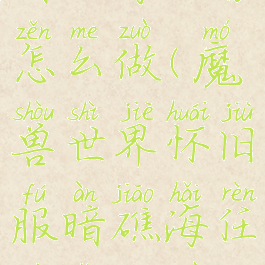 zěn me zuò mó
怎么做(魔
shòu shì jiè huái jiù
兽世界怀旧
fú àn jiāo hǎi rèn
服暗礁海任